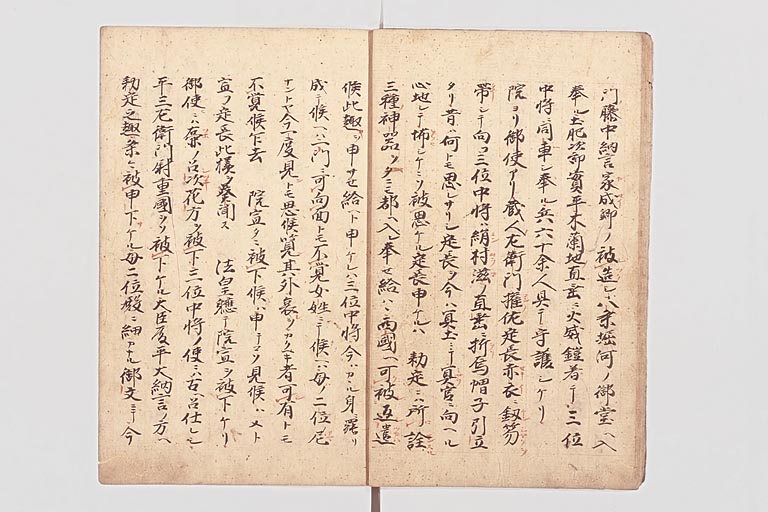 門藤中納言家成卿ノ被造シ八条堀河ノ御堂ヘ入
奉ル土肥次郎實平木蘭地直垂ニ火威鎧着テ三位
中将ニ同車シ奉ル兵六十余人具テ守護シケリ
院ヨリ御使アリ蔵人左衛門権佐定長赤衣ニ釼笏
帯シテ向フ三位中将ハ絹村滋ノ直垂ニ折烏帽子引立
タリ昔ハ何トモ思ハサリシ定長ヲ今ハ冥土ニテ冥官ニ向ヘル
心地シテ怖シケニソ被思ケル定長申ケルハ 勅定ニハ所詮
三種神器ヲタニモ都ヘ入奉セ給ハヽ西國ヘ可被返遣
候此趣ヲ申サセ給ヘト申ケレハ三位中将今ハカヽル身ニ罷リ
成テ候ヘハ一門ニ可向面トモ不覚女姓ニテ候ヘハ母ノ二位尼
ナントヤ今一度見トモ思候ハン覧其外哀ヲカクヘキ者可有トモ
不覚候乍去 院宣タニ被下候ハヽ申テコソ見候ハメト
宣フ定長此様ヲ奏聞ス 法皇聴テ院宣ヲ被下ケリ
御使ニハ召次花方ヲ被下三位中将ノ使ニハ古召仕シ
平三左衛門尉重國ヲソ被下ケル大臣殿平大納言ノ方ヘハ
勅定之趣条々被申下ケル母二位殿ニ細カナル御文ニテ今